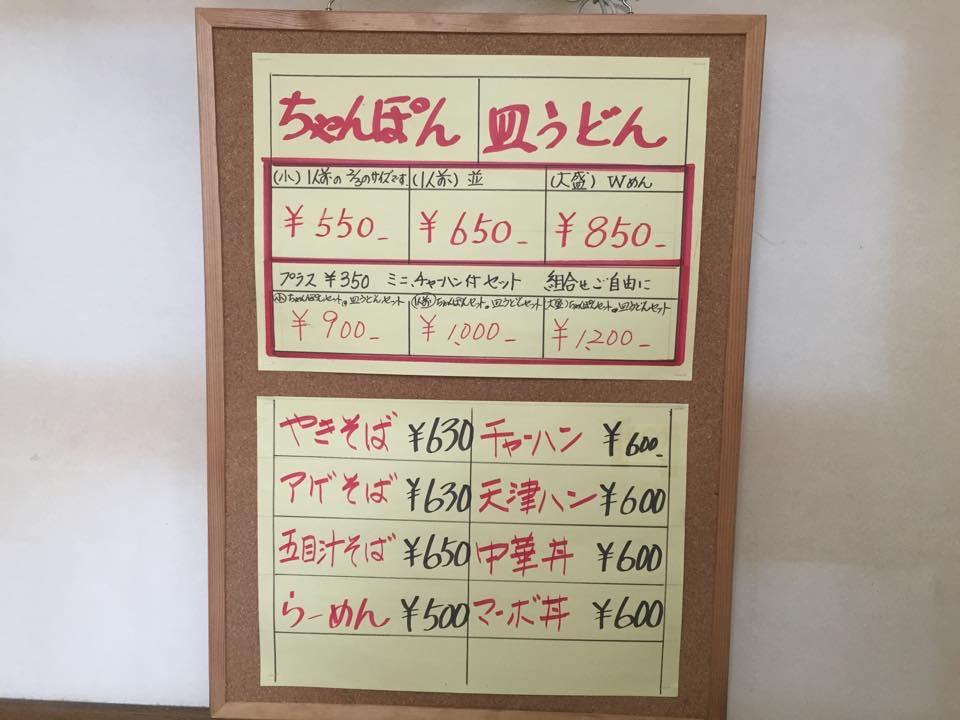 ちゃんぽん 皿うどん
(小)1人前の2/3のサイズです。 (1人前)並 (大盛)Wめん
¥550- ¥650- ¥850-
プラス¥350 ミニチャーハン付セット 組合せご自由に
(小)ちゃんぽんセット。皿うどんセット (1人前)ちゃんぽんセット。皿うどんセット (大盛)ちゃんぽんセット。皿うどんセット
¥900- ¥1,000- ¥1,200-
やきそば ¥630 チャーハン ¥600-
アゲそば ¥630 天津ハン ¥600
五目汁そば ¥650 中華丼 ¥600
らーめん ¥500 マーボ丼 ¥600